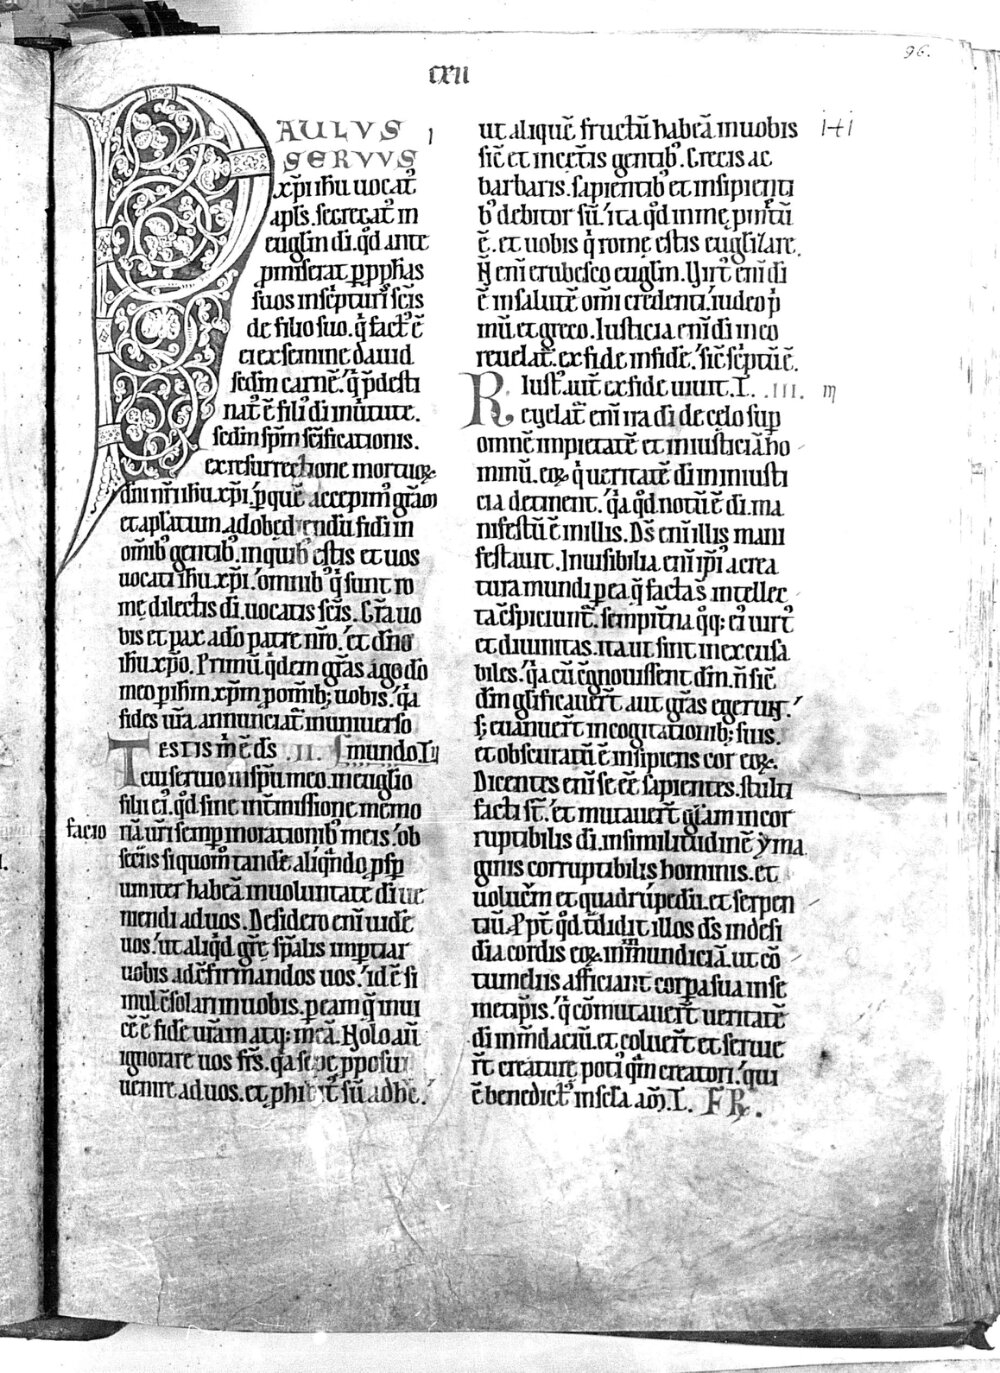 96.
cxii
PAULUS
SERVUS
xp̄i ihū uocat᷒
apl̄s. segregat᷒ in
euḡlin dī. qd̄ ante
ꝓmiserat ꝑ ꝓphetas
suos in sc̄pturis sc̄is
de filio suo. q̇ fact᷒ ē
ei ex semine dauid
scdm̄ carnē. q̇ p̄desti
nat᷒ ē fili᷒ dī in uirtute.
scdm̄ sp̄m sc̄ificationis.
ex resurrectione mortuoꝝ
dn̄i nr̄i ihū xp̄i. ꝑ quē accepim᷒ gr̄am
et apl̄atum ad obediendū fidi in
om̄ib᷒ gentib᷒. in quib᷒ estis et uos
uocati ihū xp̄i. omnib᷒ q̇ sunt ro
mę dilectis dī. uocatis sc̄is. Gr̄a uo
bis et pax a dō patre nr̄o. et dn̄o
ihū xp̄o. Primū q̇dem gr̄as ago dō
meo ꝑ ihm̄ xp̄m ꝓ om̄ib; uobis. q̇a
fides ur̄a annunciat᷒ in uniuerso
Testis m̄ ē ds̄ .II. mundo. L᷒
cui seruio in sp̄u meo. in euḡlio
filii ei᷒. qd̄ sine int̄missione memo
facio
riā ur̄i semp̄ in orationib᷒ meis. ob
secrās si quom̄ tandē aliq̄ndo ꝓsp̄
um iter habeā in uoluntate dī ue
niendi ad uos. Desidero enī uidē
uos. ut aliq̇d grę sp̄alis imꝑtiar
uobis ad c̄firmandos uos. id ē si
mul c̄solari in uobis. ꝑ eam q̄ inui
cē ē fidē ur̄am atq; meā. Nolo aut̄
ignorare uos fr̄s. q̇a sepe ꝓposui
uenire ad uos. et ꝓhibit᷒ sū adhc̄.
ut aliquē fructū habeā in uobis
sic̄ et in cet̄is gentib᷒. Grecis ac
barbaris. sapientib᷒ et insipienti
b᷒ debitor sū. ita qd̄ in me ꝓmtū
ē. et uobis q̇ romę estis euḡlizare.
N̄ enī erubesco euḡlin. Uirt᷒ enī dī
ē in salutē om̄i credenti. iudeo p̄
mū. et greco. Iusticia enī dī in eo
reuelat᷒. ex fide in fidē. sic̄ sc̄ptū ē.
Iust᷒ aut̄ ex fide uiuit. L. .III.
Reuelat᷒ enī ira dī de cęlo sup̄
omnē impietatē et iniusticiā ho
minū eoꝝ q̇ ueritatē dī in iniusti
cia detinent. q̇a qd̄ notū ē dī. ma
nifestū ē in illis. Ds̄ enī illis mani
festauit. Inuisibilia enī ip̄i᷒ a crea
tura mundi ꝑ ea q̄ facta sūt intellec
ta c̄spiciunt᷒. sempit̄na q̄q; ei᷒ uirt᷒
et diuinitas. ita ut sint inexcusa
biles. q̇a cū c̄gnouissent dm̄. n̄ sic̄
dm̄ gl̄ificauer̄t aut gr̄as egerunt.
s; euanuer̄t in cogitationib; suis.
et obscuratū ē insipiens cor eoꝝ.
Dicentes enī se eē sapientes. stulti
facti st̄. et mutauer̄t gl̄iam incor
ruptibilis dī. in similitudinē yma
ginis corruptibilis hominis. et
uolucrū et quadrupediū. et serpen
tiū. Ppt̄ qd̄ tradidit illos ds̄ in desi
dia cordis eoꝝ inmundiciā. ut cō
tumeliis afficiant corpa sua in se
metip̄is. q̇ cōmutauer̄t ueritatē
dī in m̄daciū. et coluer̄t et seruie
r̄t creaturę poti᷒ q̄m creatori. qui
ē benedict᷒ in sc̄la am̄. L. FR.